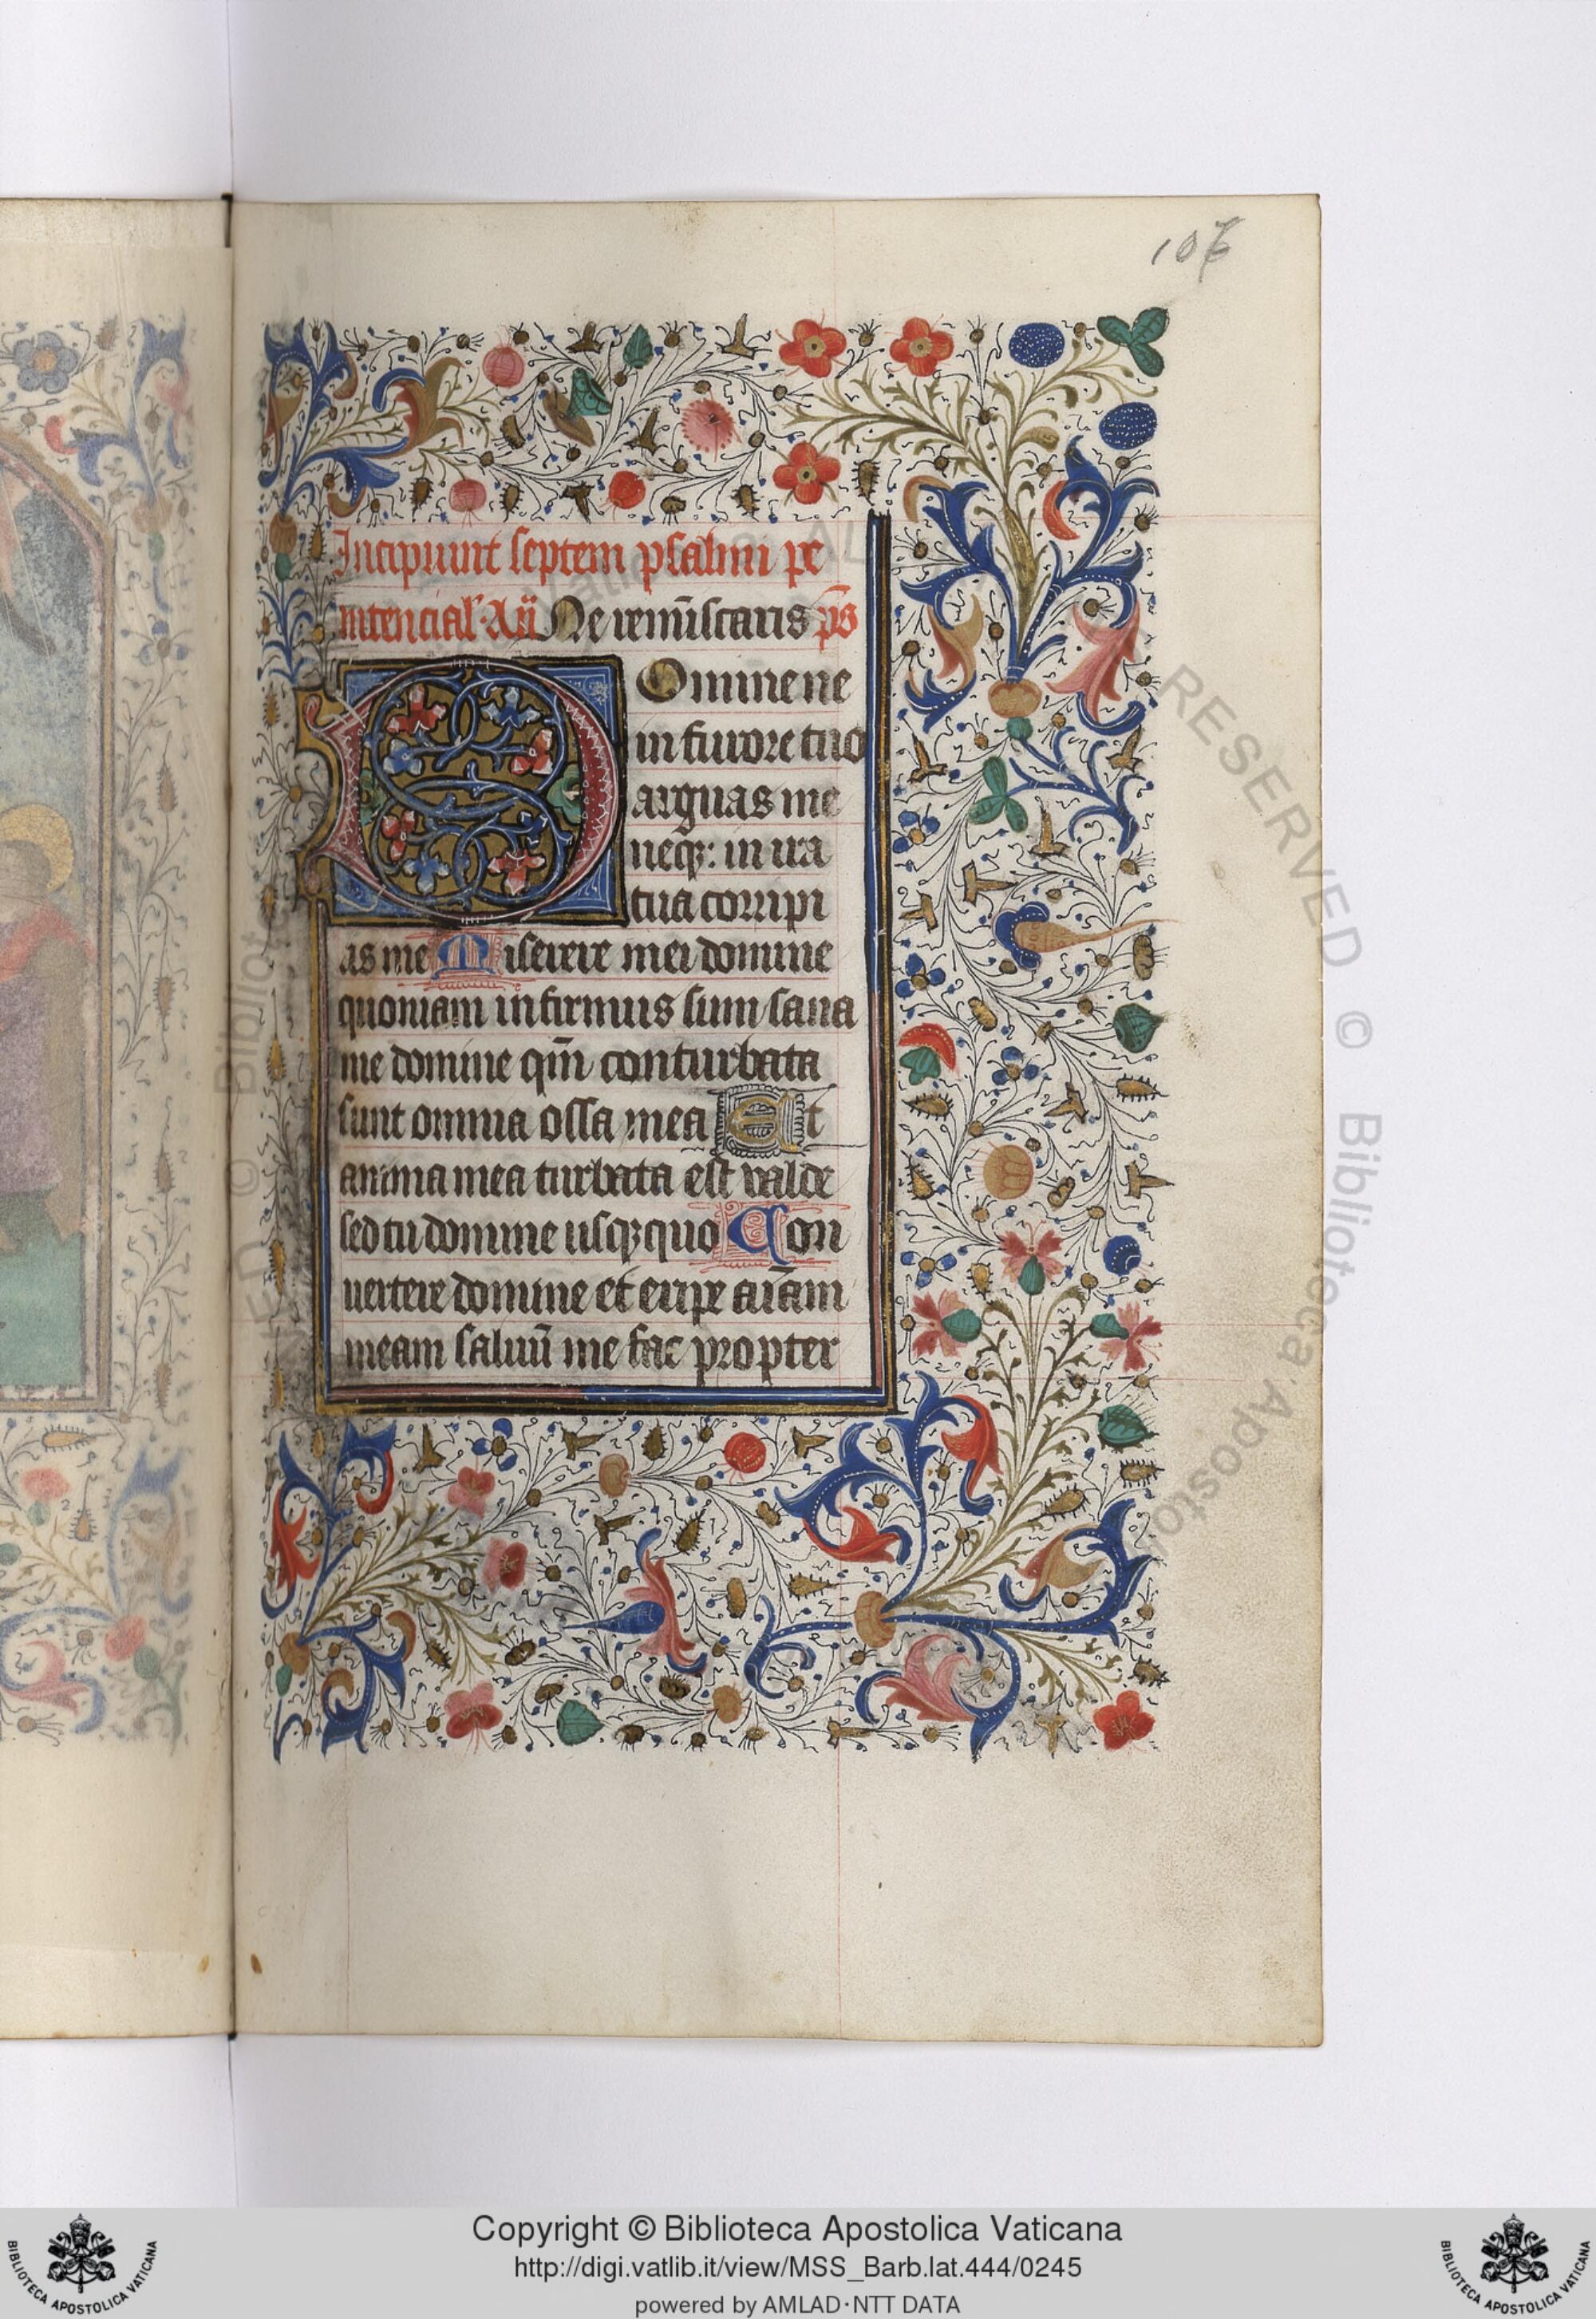 106
Incipiunt septem psalmi pe
nitencial' Añ Ne reminīscaris p̄s
Domine ne
in furore tuo
arguas me
neqꝫ: in ira
tua corripi
as me Miserere mei domine
quoniam infirmus sum sana
me domine qm̄ conturbata
sunt omnia ossa mea Et
anima mea turbata est valde
sed tu domine usqꝫquo Con
uertere domine et eripe aīam
meam saluū me fac propter
RESERVED © Biblioteca Apostolica
Copyright © Biblioteca Apostolica Vaticana
http://digi.vatlib.it/view/MSS_Barb.lat.444/0245
powered by AMLAD·NTT DATA
BIBLIOTECA APOSTOLICA VATICANA
BIBLIOTECA APOSTOLICA VATICANA